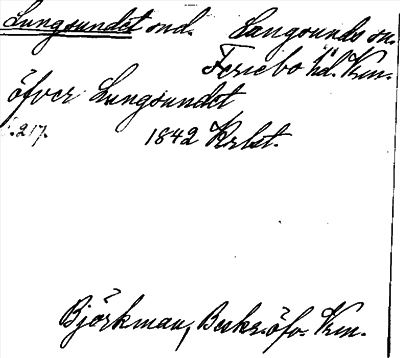 Lungsundet snd. Lungsunds sn.
Fernebo hd. Vrm.
öfver Lungsundet
s. 217. 1842 Krlst.
Björkman, Beskr. öfv. Vrm.